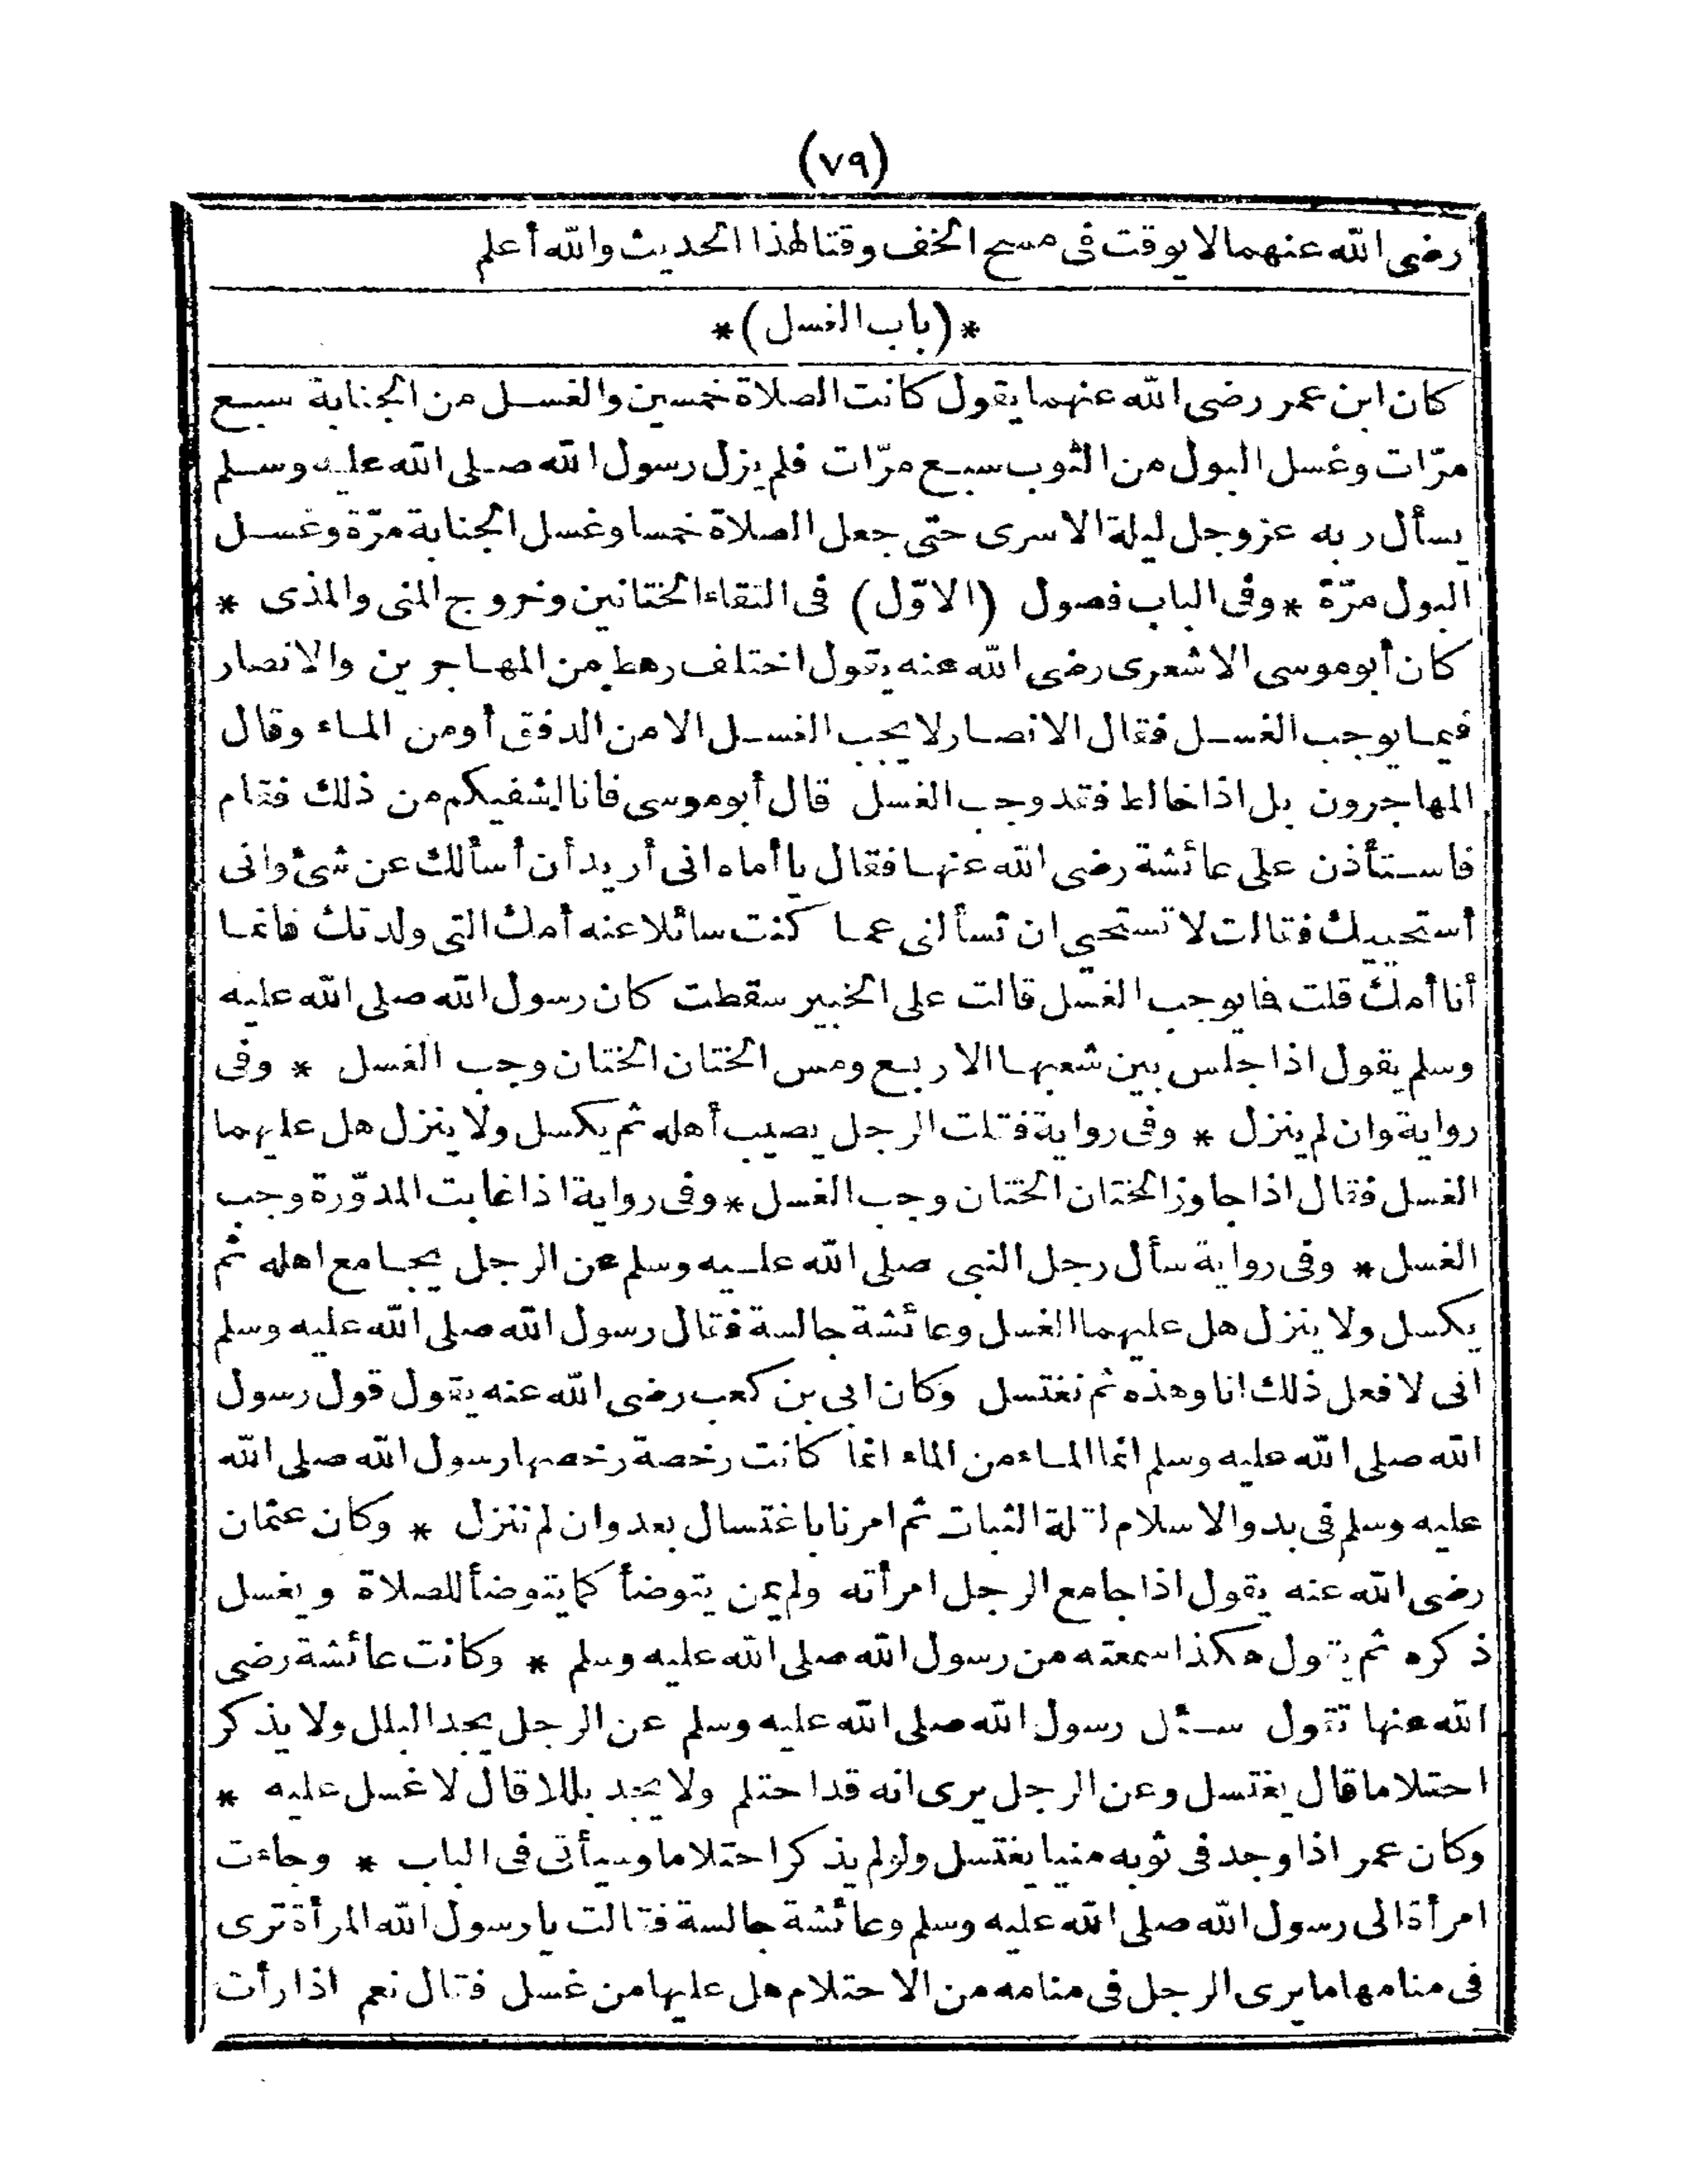 (٧٩)
رضى الله عنهما لا يوقت فى مسح الخف وقتا لهذا الحديث والله أعلم
*(باب الغسل)*
كان ابن عمر رضى الله عنهما يقول كانت الصلاة خمسين والغسل من الجنابة سبع
مرّات وغسل البول من الثوب سبع مرّات فلم يزل رسول الله صلى الله عليه وسلم
يسأل ربه عزوجل ليلة الاسرى حتى جعل الصلاة خمسا وغسل الجنابة مرّة وغسل
البول مرّة * وفى الباب فصول (الاوّل) فى التقاء الختانين وخروج المنى والمذى *
كان أبو موسى الاشعرى رضى الله عنه يقول اختلف رهط من المهاجرين والانصار
فيما يوجب الغسل فقال الانصار لا يجب الغسل الا من الدفق أو من الماء وقال
المهاجرون بل اذا خالط فقد وجب الغسل قال أبو موسى فانا اشفيكم من ذلك فقام
فاستأذن على عائشة رضى الله عنها فقال يا أماه انى أريد أن أسألك عن شئ وانى
أستحييك فقالت لا تستحى ان تسألنى عما كنت سائلا عنه أمك التى ولدتك فانما
أنا أمك قلت فما يوجب الغسل قالت على الخبير سقطت كان رسول الله صلى الله عليه
وسلم يقول اذا جلس بين شعبها الاربع ومس الختان الختان وجب الغسل * وفى
رواية وان لم ينزل * وفى رواية فقلت الرجل يصيب أهله ثم يكسل ولا ينزل هل عليهما
الغسل فقال اذا جاوز الختان الختان وجب الغسل * وفى رواية اذا غابت المدوّرة وجب
الغسل * وفى رواية سأل رجل النبى صلى الله عليه وسلم عن الرجل يجامع اهله ثم
يكسل ولا ينزل هل عليهما الغسل وعائشة جالسة فقال رسول الله صلى الله عليه وسلم
انى لافعل ذلك انا وهذه ثم نغتسل وكان ابى بن كعب رضى الله عنه يقول قول رسول
الله صلى الله عليه وسلم انما الماء من الماء انما كانت رخصة رخصها رسول الله صلى الله
عليه وسلم فى بدو الاسلام لقلة الثياب ثم امرنا باغتسال بعد وان لم ننزل * وكان عثمان
رضى الله عنه يقول اذا جامع الرجل امرأته ولم يمن يتوضأ كما يتوضأ للصلاة ويغسل
ذكره ثم يقول هكذا سمعته من رسول الله صلى الله عليه وسلم * وكانت عائشة رضى
الله عنها تقول سئل رسول الله صلى الله عليه وسلم عن الرجل يجد البلل ولا يذكر
احتلاما قال يغتسل وعن الرجل يرى انه قد احتلم ولا يجد بللا قال لا غسل عليه *
وكان عمر اذا وجد فى ثوبه منيا يغتسل ولو لم يذكر احتلاما وسيأتى فى الباب * وجاءت
امرأة الى رسول الله صلى الله عليه وسلم وعائشة جالسة فقالت يا رسول الله المرأة ترى
فى منامها ما يرى الرجل فى منامه من الاحتلام هل عليها من غسل فقال نعم اذا رأت